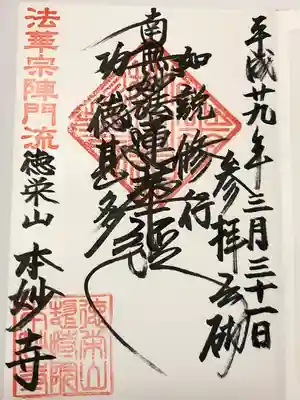 平成廿九年三月三十一日
参拝云爾
如説修行
南無妙法蓮華経
功徳甚多
法華宗陣門流
徳栄山
本妙寺
徳栄山